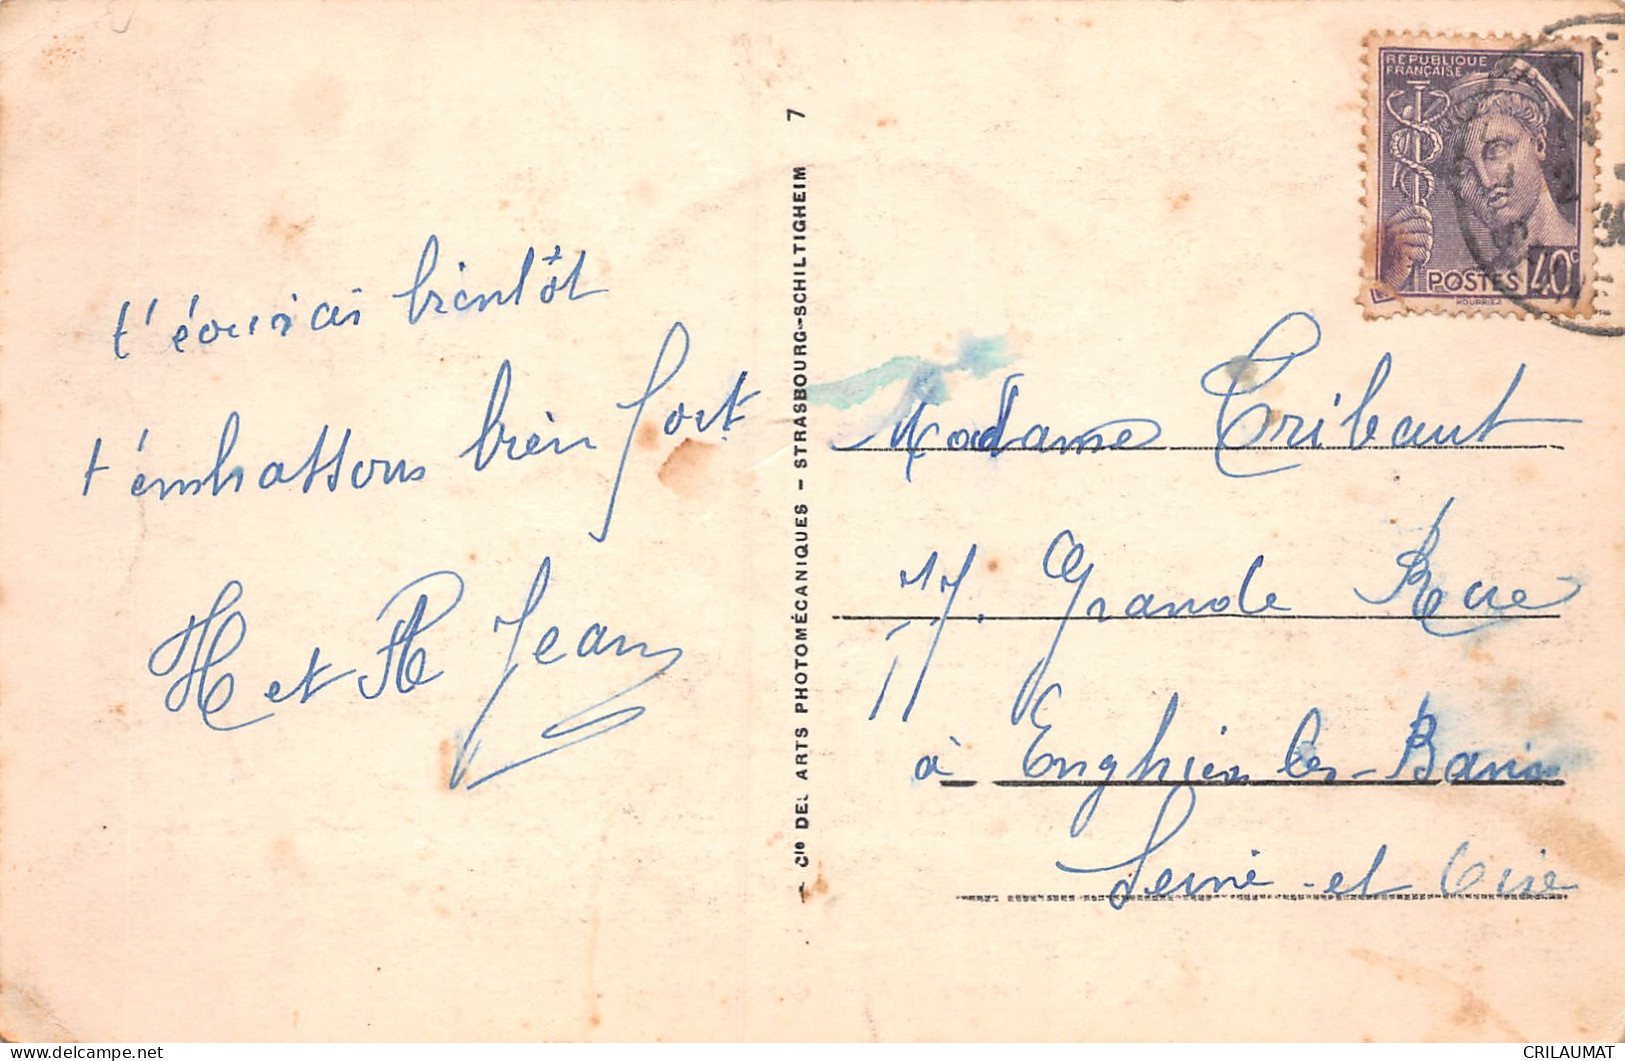 t'écrirai bientôt
t'embrassons bien fort
et Jean
Cie DES ARTS PHOTOMÉCANIQUES - STRASBOURG-SCHILTIGHEIM 7
RÉPUBLIQUE
FRANÇAISE
POSTES 40c
HOURRIEZ
Madame Tribaut
17. Grande Rue
à Enghien les-Bains
Seine-et Oise
delcampe.net
CRILAUMAT